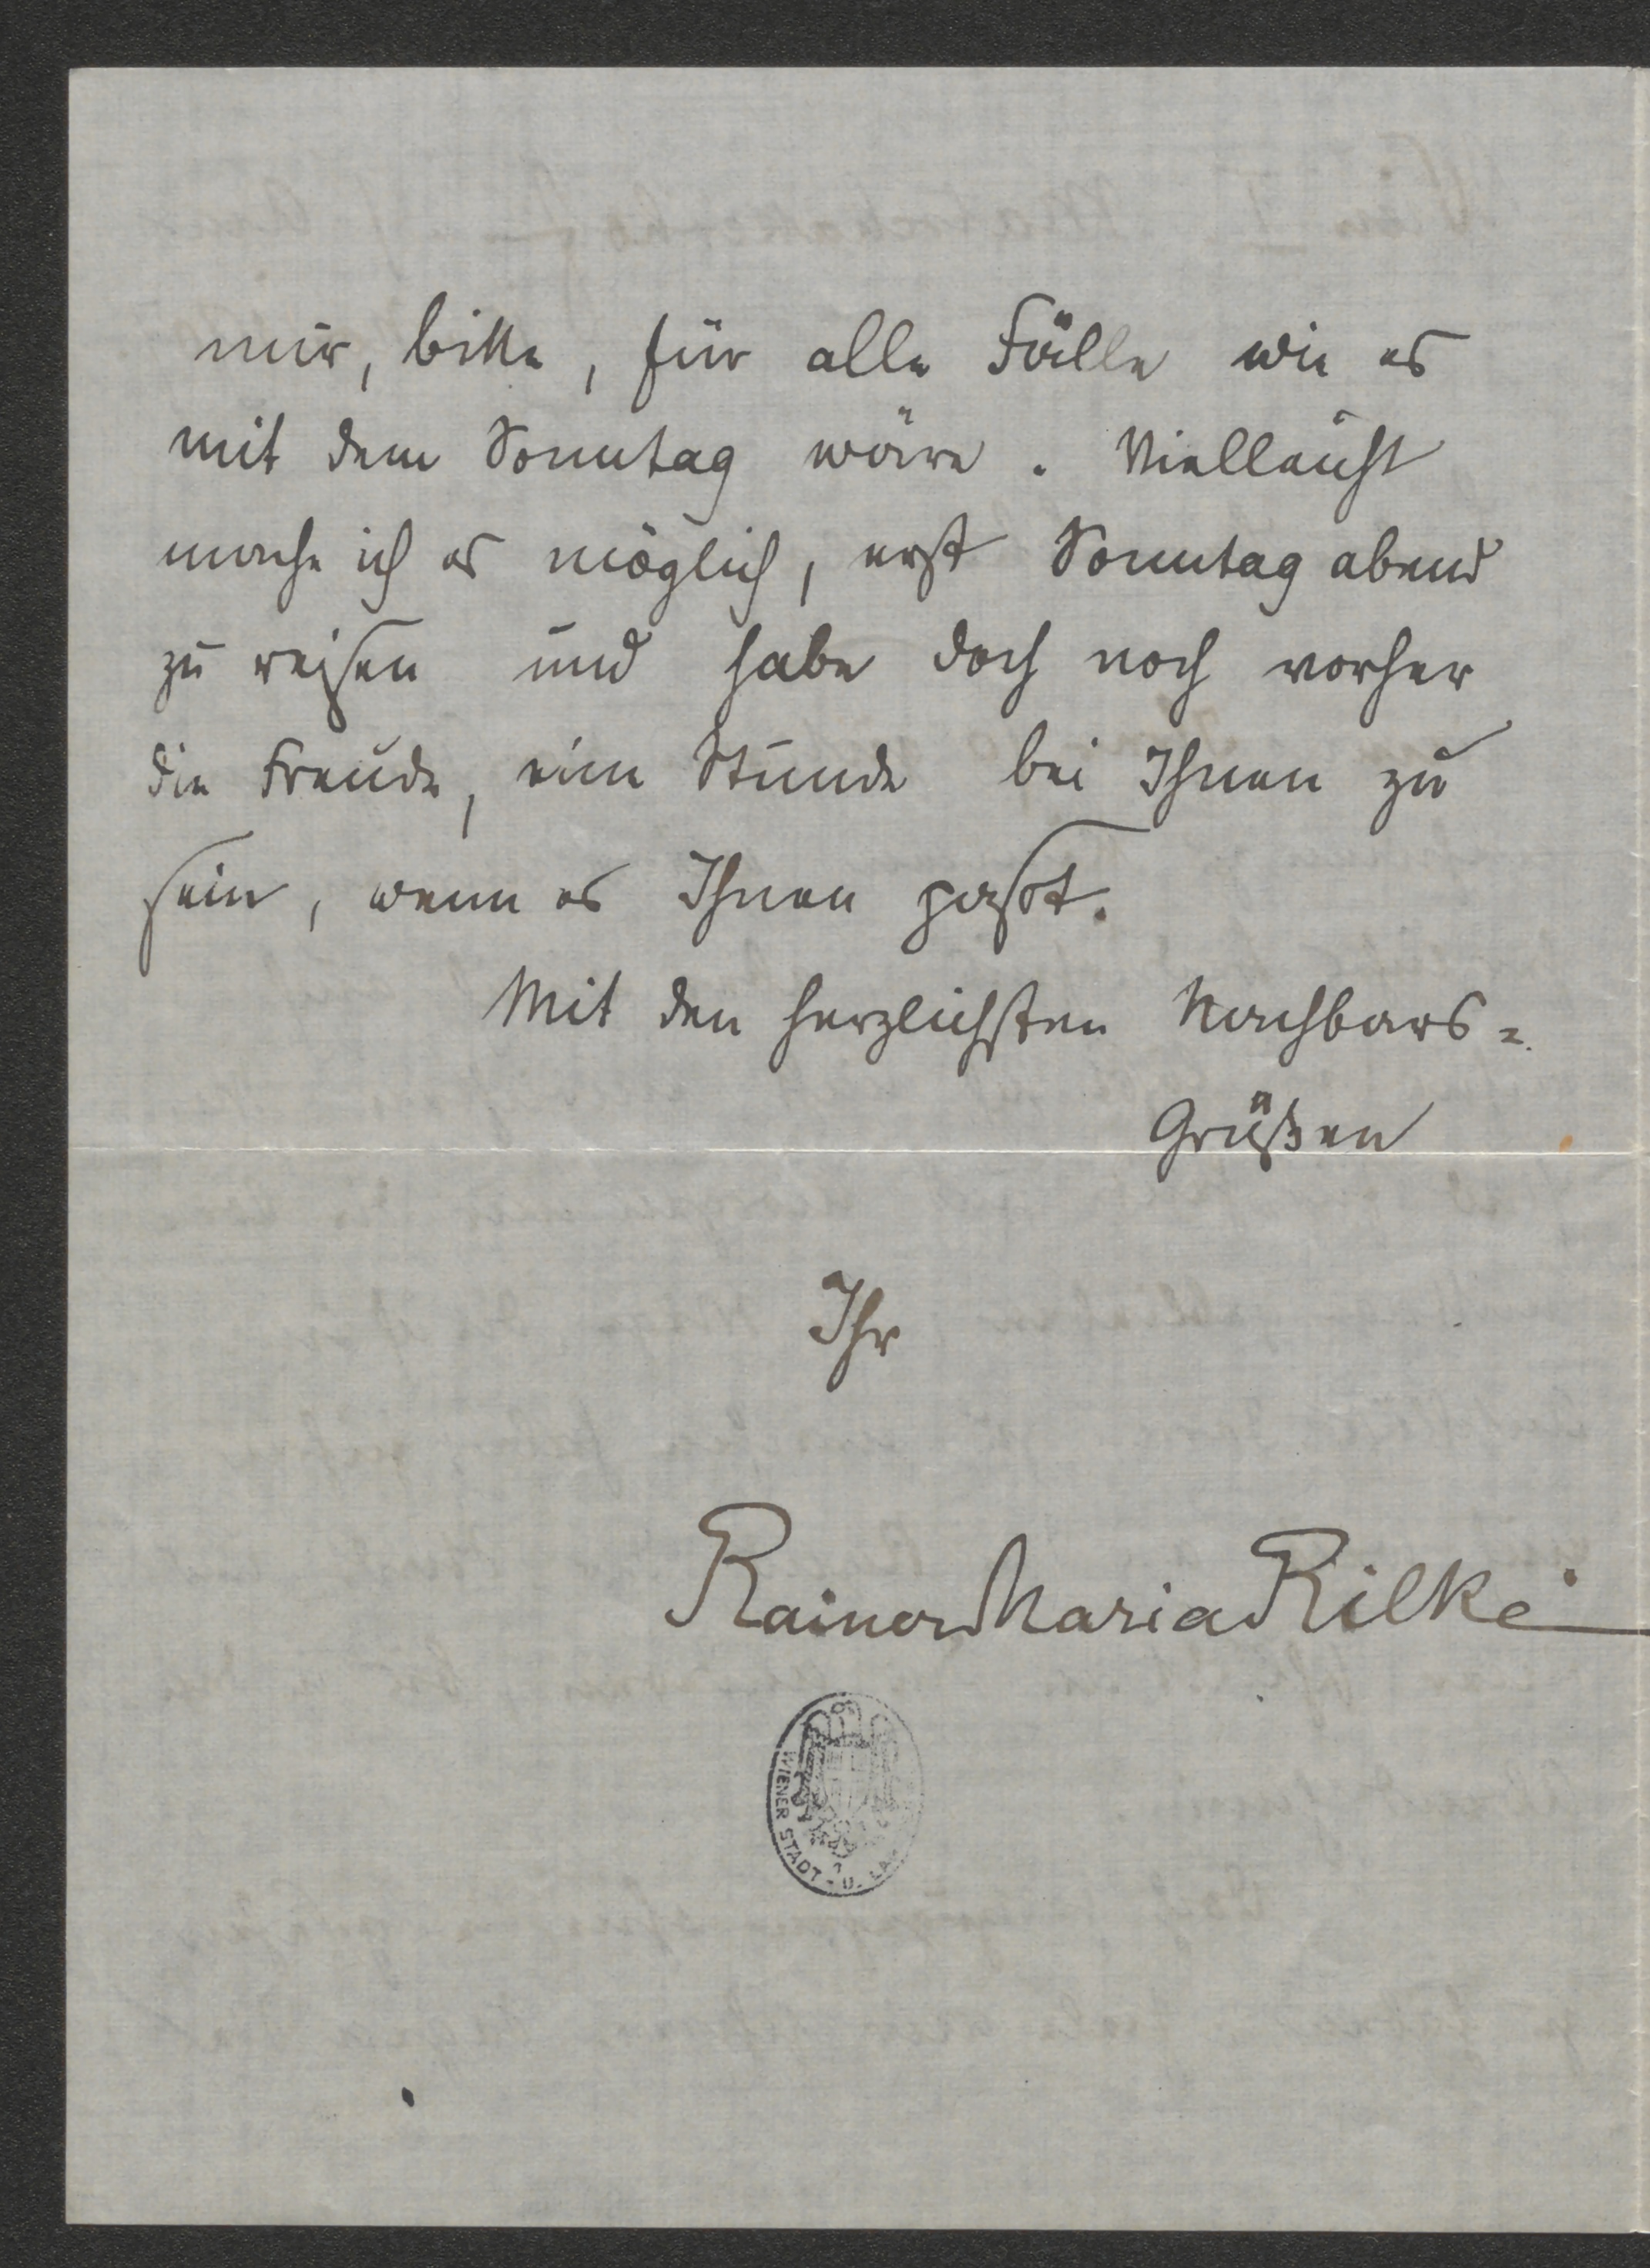 mir, bitte, für alle Fälle wie es
mit dem Sonntag wäre. Vielleicht
mache ich es möglich, erst Sonntag abend
zu reisen und habe doch noch vorher
die Freude, eine Stunde bei Ihnen zu
sein, wenn es Ihnen passt.
Mit den herzlichsten Nachbars=
Grüßen
Ihr
Rainer Maria Rilke
WIENER STADT - U.